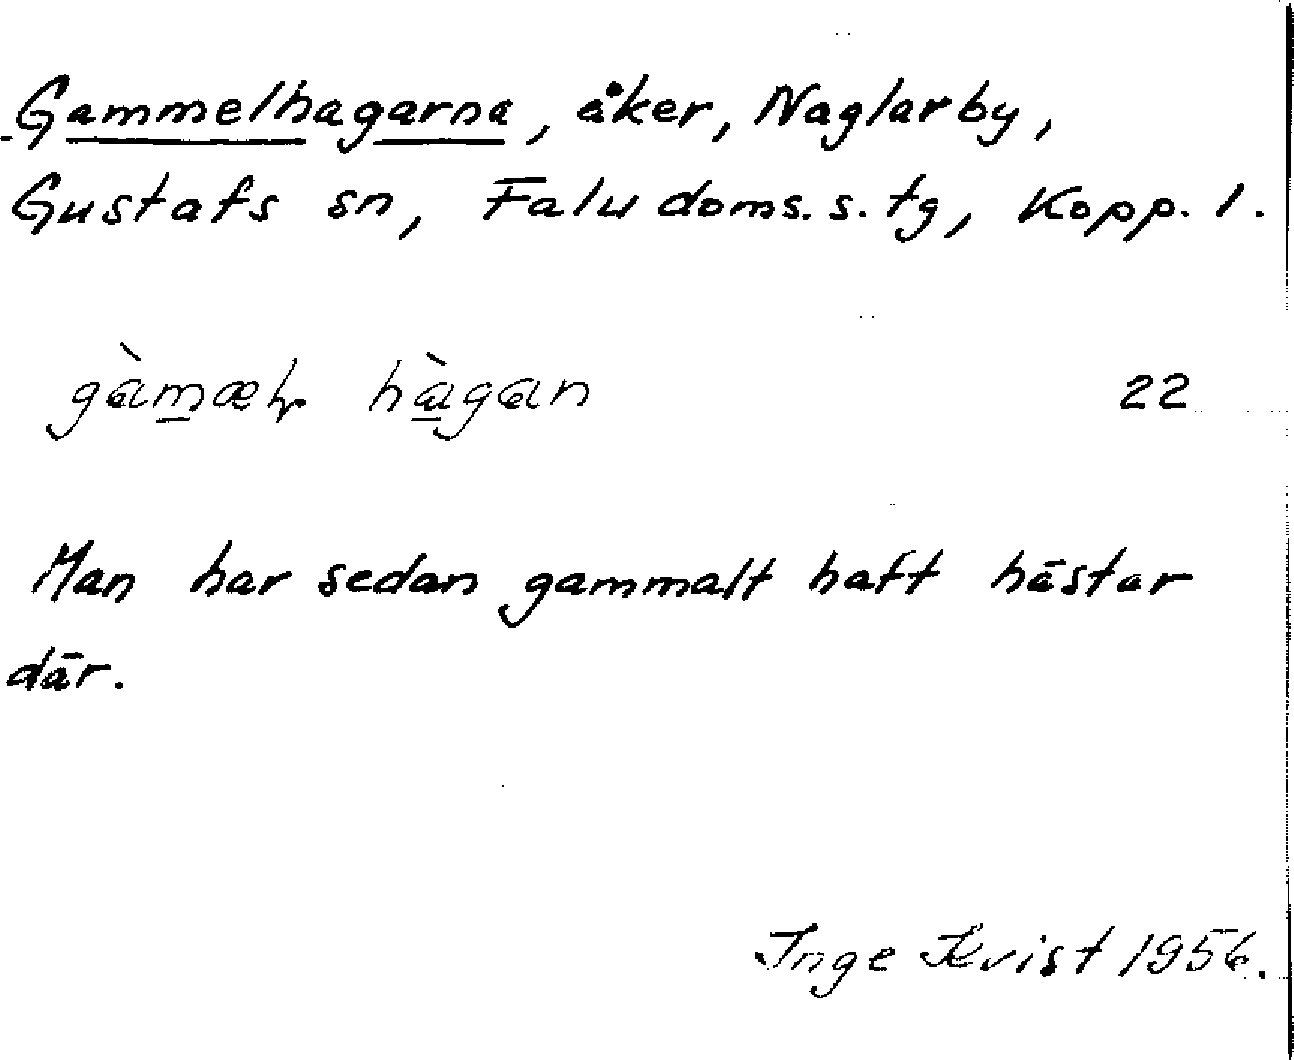 Gammelhagarna, åker, Naglarby,
Gustafs sn, Falu doms. s. tg, Kopp. l.
hàgan 22
Man har sedan gammalt haft hästar
där.
Inge Kvist 1956.